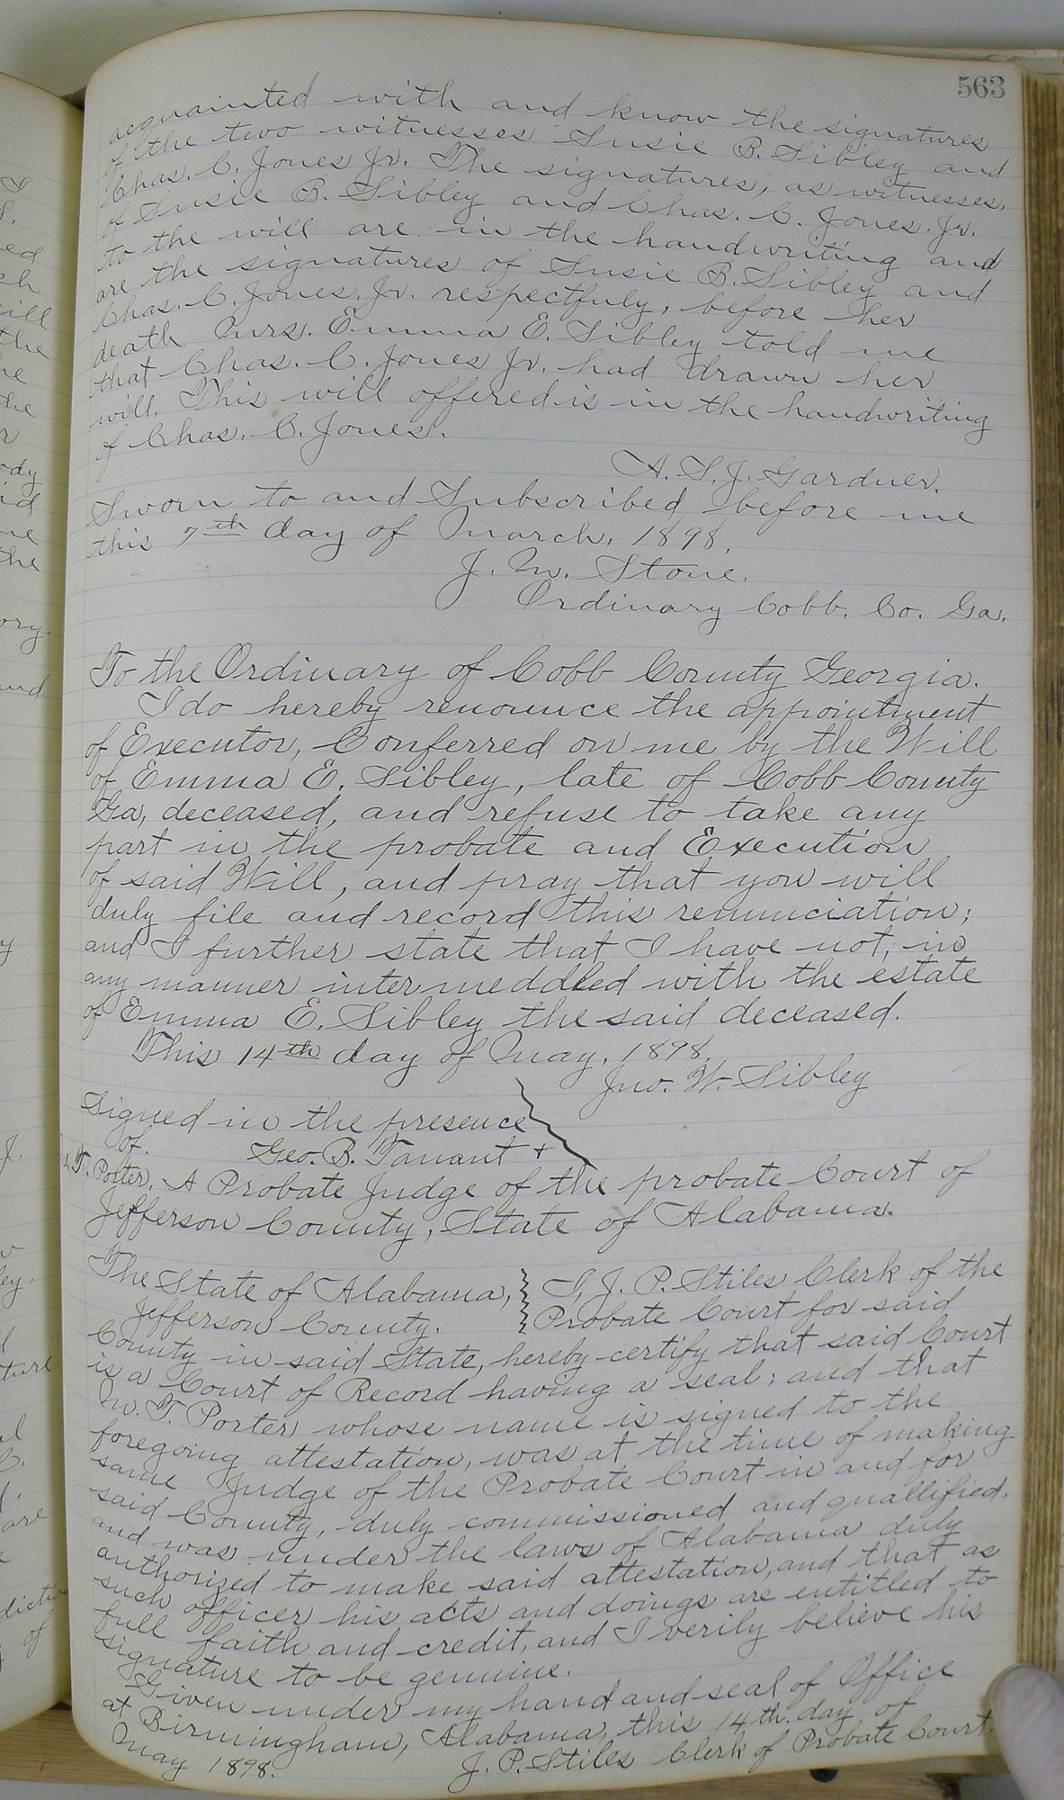 563
acquainted with and know the signatures
of the two witnesses Susie B. Sibley and
Chas. C. Jones Jr. The signatures, as witnesses,
of Susie B. Sibley and Chas. C. Jones. Jr.
to the will are in the handwriting and
are the signatures of Susie B. Sibley and
Chas. C. Jones. Jr. respectfuly, before her
death Mrs. Emma E. Sibley told me
that Chas. C. Jones Jr. had drawn her
will. This will offered is in the handwriting
of Chas. C. Jones.
A. S. J. Gardner.
Sworn to and Subscribed before me
this 7th day of March, 1898.
J. M. Stone.
Ordinary Cobb. Co. Ga.
To the Ordinary of Cobb County Georgia.
I do hereby renounce the appointment
of Executor, Conferred on me by the Will
of Emma E. Sibley, late of Cobb County
Ga, deceased, and refuse to take any
part in the probate and Execution
of said Will, and pray that you will
duly file and record this renunciation;
and I further state that I have not, in
any manner intermeddled with the estate
of Emma E. Sibley the said deceased.
This 14th day of May, 1898.
Jno. W. Sibley
Signed in the presence
of. Geo. B. Tanant +
M. T. Porter, A Probate Judge of the probate Court of
Jefferson County, State of Alabama.
The State of Alabama, } I, J. P. Stiles Clerk of the
Jefferson County. } Probate Court for said
County in said State, hereby certify that said Court
is a Court of Record having a seal; and that
M. T. Porter whose name is signed to the
foregoing attestation, was at the time of making
same Judge of the Probate Court in and for
said County, duly commissioned and quallified.
and was under the laws of Alabama duly
authorized to make said attestation, and that as
such officer his acts and doings are entitled to
full faith and credit, and I verily believe his
signature to be genuine.
Given under my hand and seal of Office
at Birmingham, Alabama, this 14th. day of
May 1898. J. P. Stiles Clerk of Probate Court.